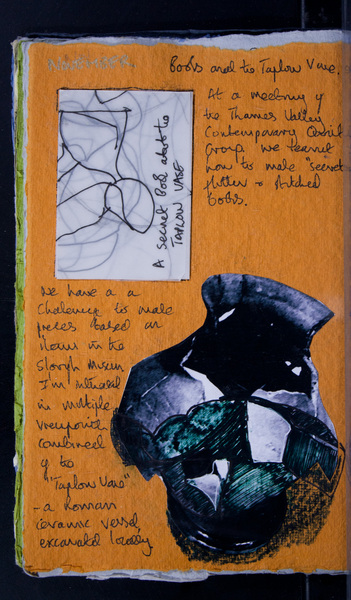 Books and the Taplow Vase,
At a meeting of
the Thames Valley
Contemporary Quilt
Group we learnt
how to make "secret"
flutter & stitched
books.
A Secret Book about the
TAPLOW VASE
We have a a
Challenge to make
pieces based on
items in the
Slough Museum
I'm interested
in multiple
viewpoints
combined
of the
"Taplow Vase"
- a Roman
ceramic vessel,
excavated locally